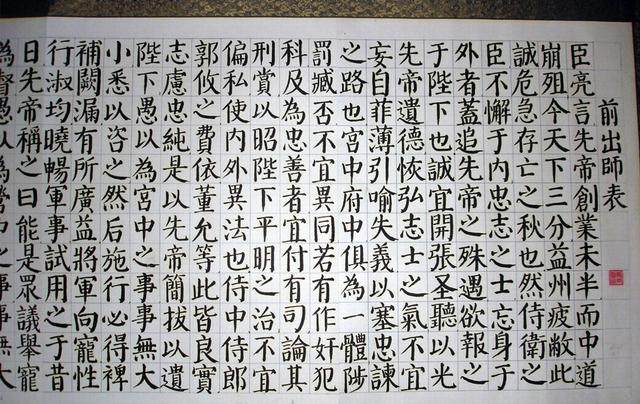 前出師表
臣亮言先帝創業未半而中道
崩殂今天下三分益州疲敝此
誠危急存亡之秋也然侍衛之
臣不懈于内忠志之士忘身于
外者蓋追先帝之殊遇欲報之
于陛下也誠宜開張圣聽以光
先帝遺德恢弘志士之氣不宜
妄自菲薄引喻失義以塞忠諫
之路也宮中府中俱為一體陟
罰臧否不宜異同若有作奸犯
科及為忠善者宜付有司論其
刑賞以昭陛下平明之治不宜
偏私使内外異法也侍中侍郎
郭攸之費依董允等此皆良實
志慮忠純是以先帝簡拔以遺
陛下愚以為宮中之事事無大
小悉以咨之然后施行必得裨
補闕漏有所廣益將軍向寵性
行淑均曉暢軍事試用之于昔
日先帝稱之曰能是眾議舉寵
為督愚以為營中之事事無大